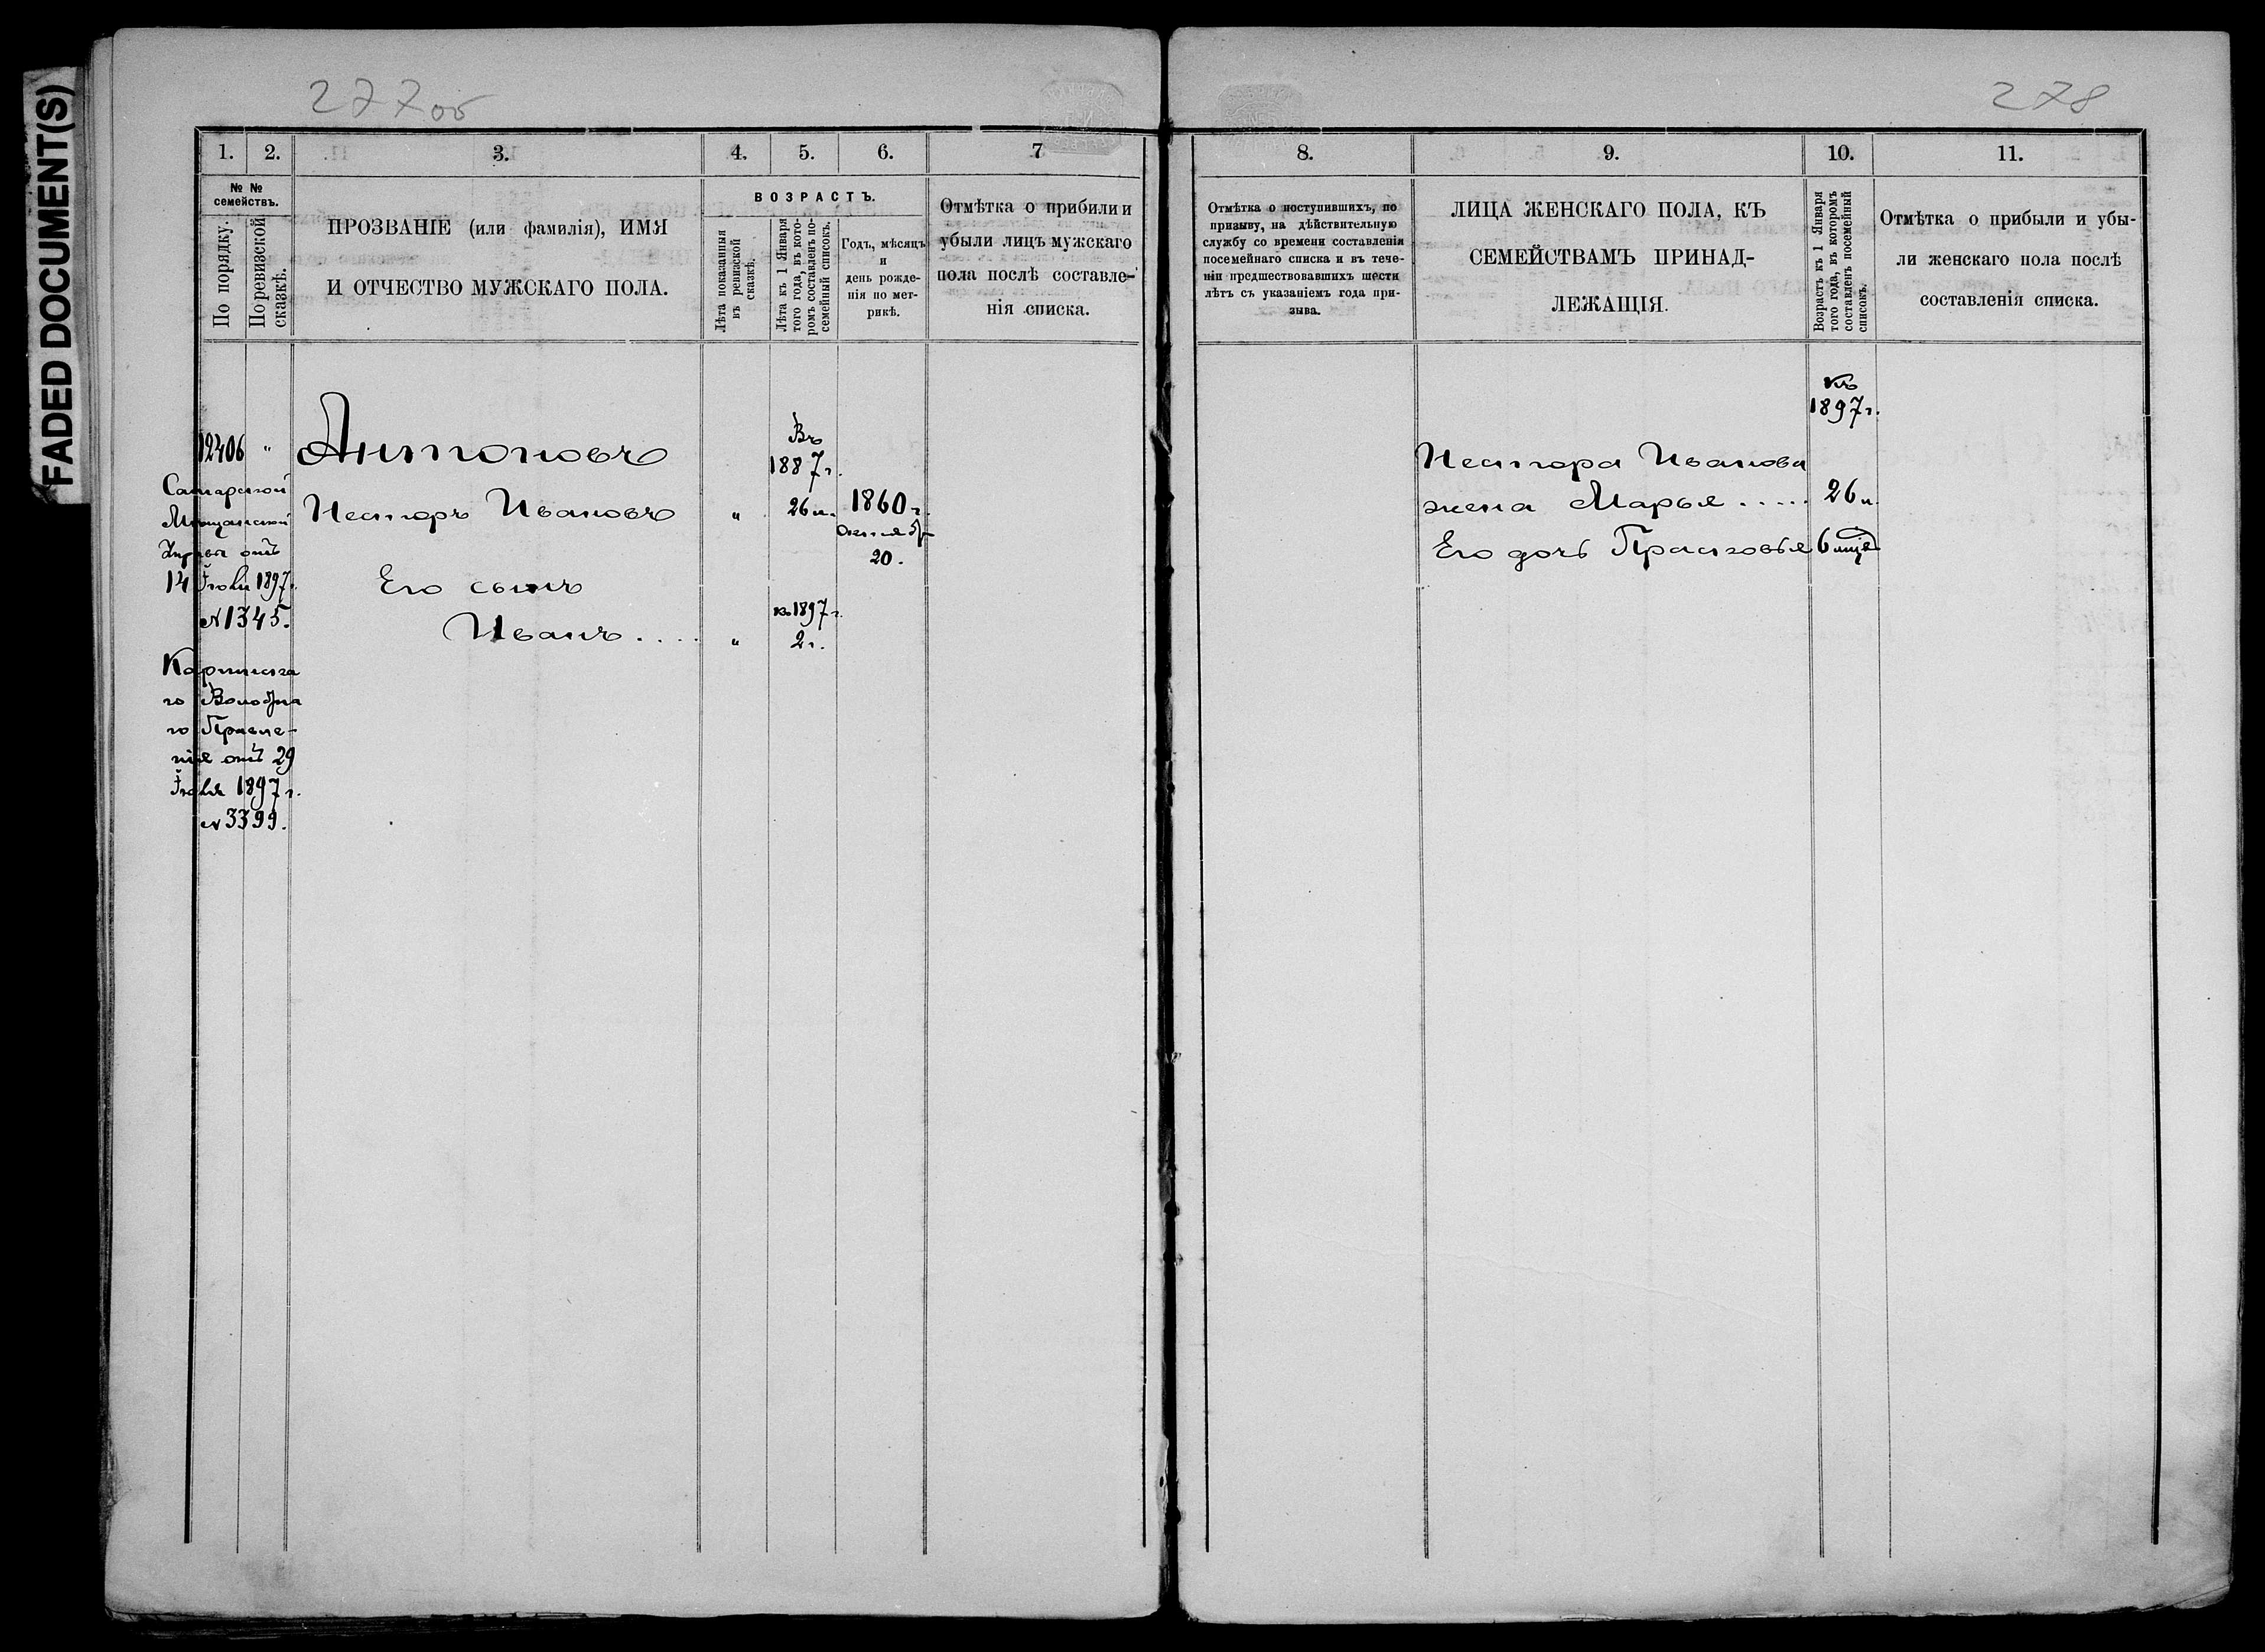 FADED DOCUMENT(S)
277об
1. 2. 3. 4. 5. 6. 7
№ №
семействъ.
По порядку.
По ревизской
сказкѣ.
ПРОЗВАНІЕ (или фамилія), ИМЯ
И ОТЧЕСТВО МУЖСКАГО ПОЛА.
ВОЗРАСТЪ.
Лѣта показанныя
въ ревизской
сказкѣ.
Лѣта къ 1 Января
того года, въ кото-
ромъ составленъ по-
семейный списокъ.
Годъ, мѣсяцъ
и
день рожде-
нія по мет-
рикѣ.
Отмѣтка о прибыли и
убыли лицъ мужскаго
пола послѣ составле-
нія списка.
12406 " Антоновъ
Въ
1887 г.
Самарской
Мѣщанской
Управы отъ
14 Іюля 1897 г.
№ 1345.
Несторъ Ивановъ " 26 л. 1860 г.
октября
20.
Его сынъ
къ 1897 г.
Иванъ . . . . " 2 г.
го Волостна
го Правле-
нія отъ 29
Іюля 1897 г.
№ 3399.
278
8. 9. 10. 11.
Отмѣтка о поступившихъ, по
призыву, на дѣйствительную
службу со времени составленія
посемейнаго списка и въ тече-
ніи предшествовавшихъ шести
лѣтъ съ указаніемъ года при-
зыва.
ЛИЦА ЖЕНСКАГО ПОЛА, КЪ
СЕМЕЙСТВАМЪ ПРИНАД-
ЛЕЖАЩІЯ.
Возрастъ къ 1 Января
того года, въ которомъ
составленъ посемейный
списокъ.
Отмѣтка о прибыли и убы-
ли женскаго пола послѣ
составленія списка.
Къ
1897 г.
Нестора Иванова
жена Марья . . . . . 26 л.
Его дочь Прасковья 6 мцѣ